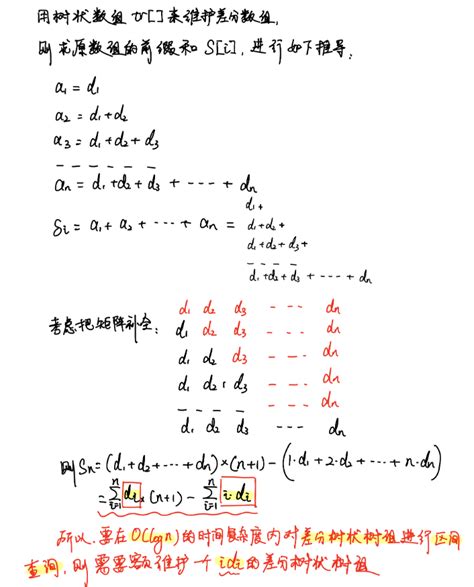 用树状数组 v[] 来维护差分数组,
则求原数组的前缀和 S[i], 进行如下推导:
a₁ = d₁
a₂ = d₁+d₂
a₃ = d₁+d₂+d₃
— — — — — —
aₙ = d₁+d₂+d₃ + ---- + dₙ
Sᵢ = a₁ + a₂ + ---- + aₙ =
d₁+
d₁+d₂+
d₁+d₂+d₃+
— — — — —
d₁+d₂+d₃ + ---- + dₙ
考虑把矩阵补全:
d₁ d₂ d₃ --- dₙ
d₁ d₂ d₃ --- dₙ
d₁ d₂ d₃ --- dₙ
d₁ d₂ d₃ --- dₙ
— — — — --- dₙ
d₁ d₂ d₃ --- dₙ
则Sₙ = (d₁+d₂+---+dₙ)×(n+1) - (1·d₁+2·d₂+---+n·dₙ)
= ∑ⁿᵢ₌₁ dᵢ × (n+1) - ∑ⁿᵢ₌₁ i·dᵢ
所以, 要在O(logn)的时间复杂度内对差分树状树组进行区间
查询, 则需要额外维护一个 idᵢ 的差分树状树组